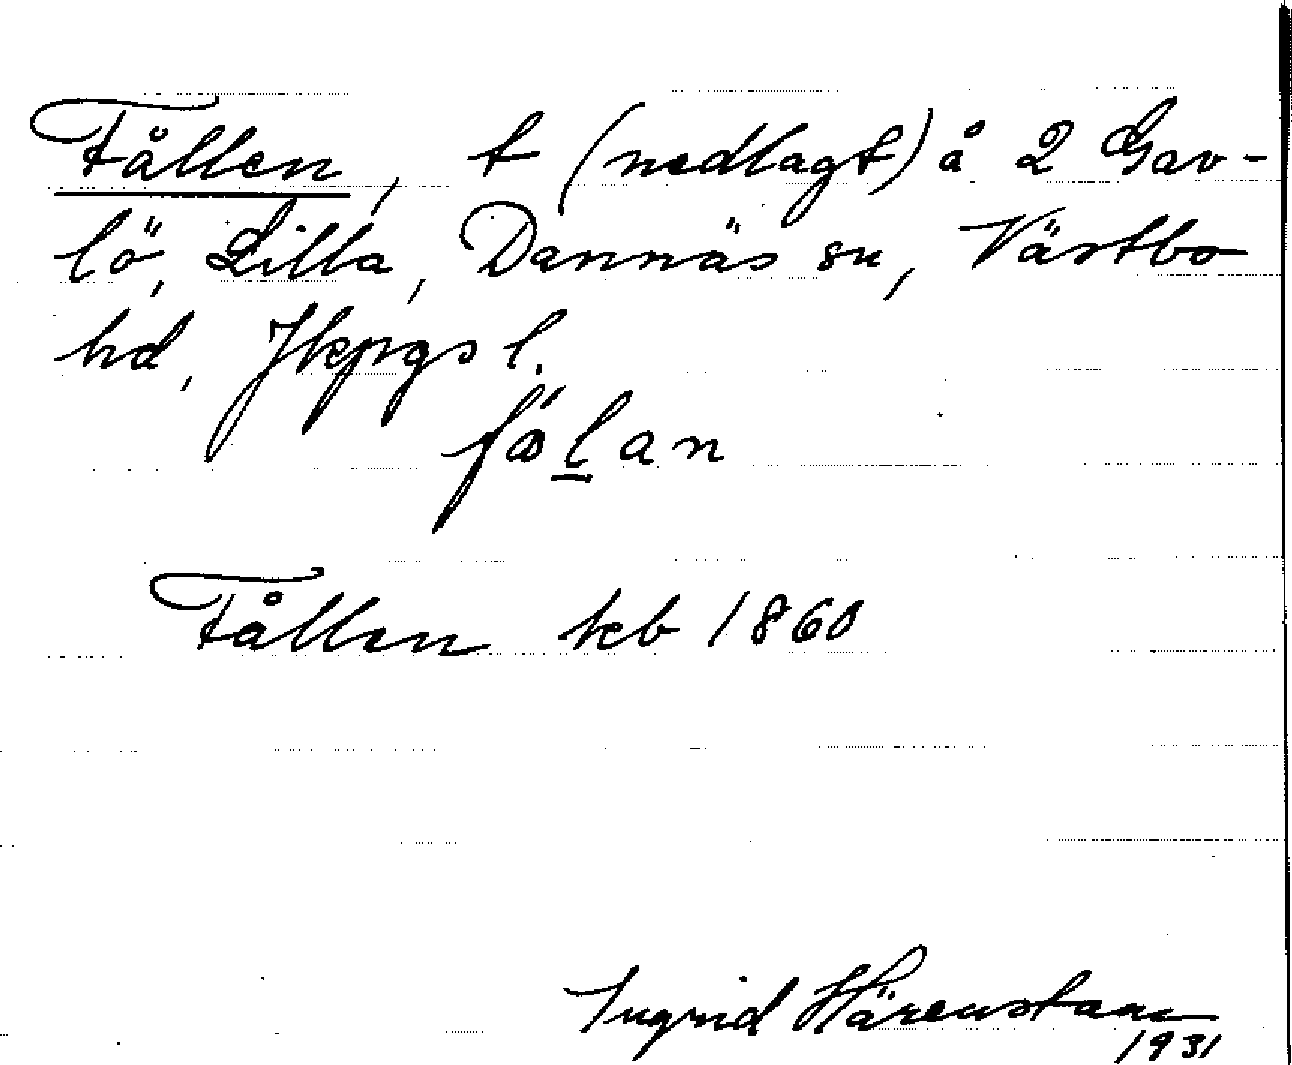 Fållen, t (nedlagt) å 2 Gav-
lö, Lilla, Dannäs sn, Västbo
hd, Jkpgs l.
fålan
Fållen keb 1860
Ingrid Härenstam
1931